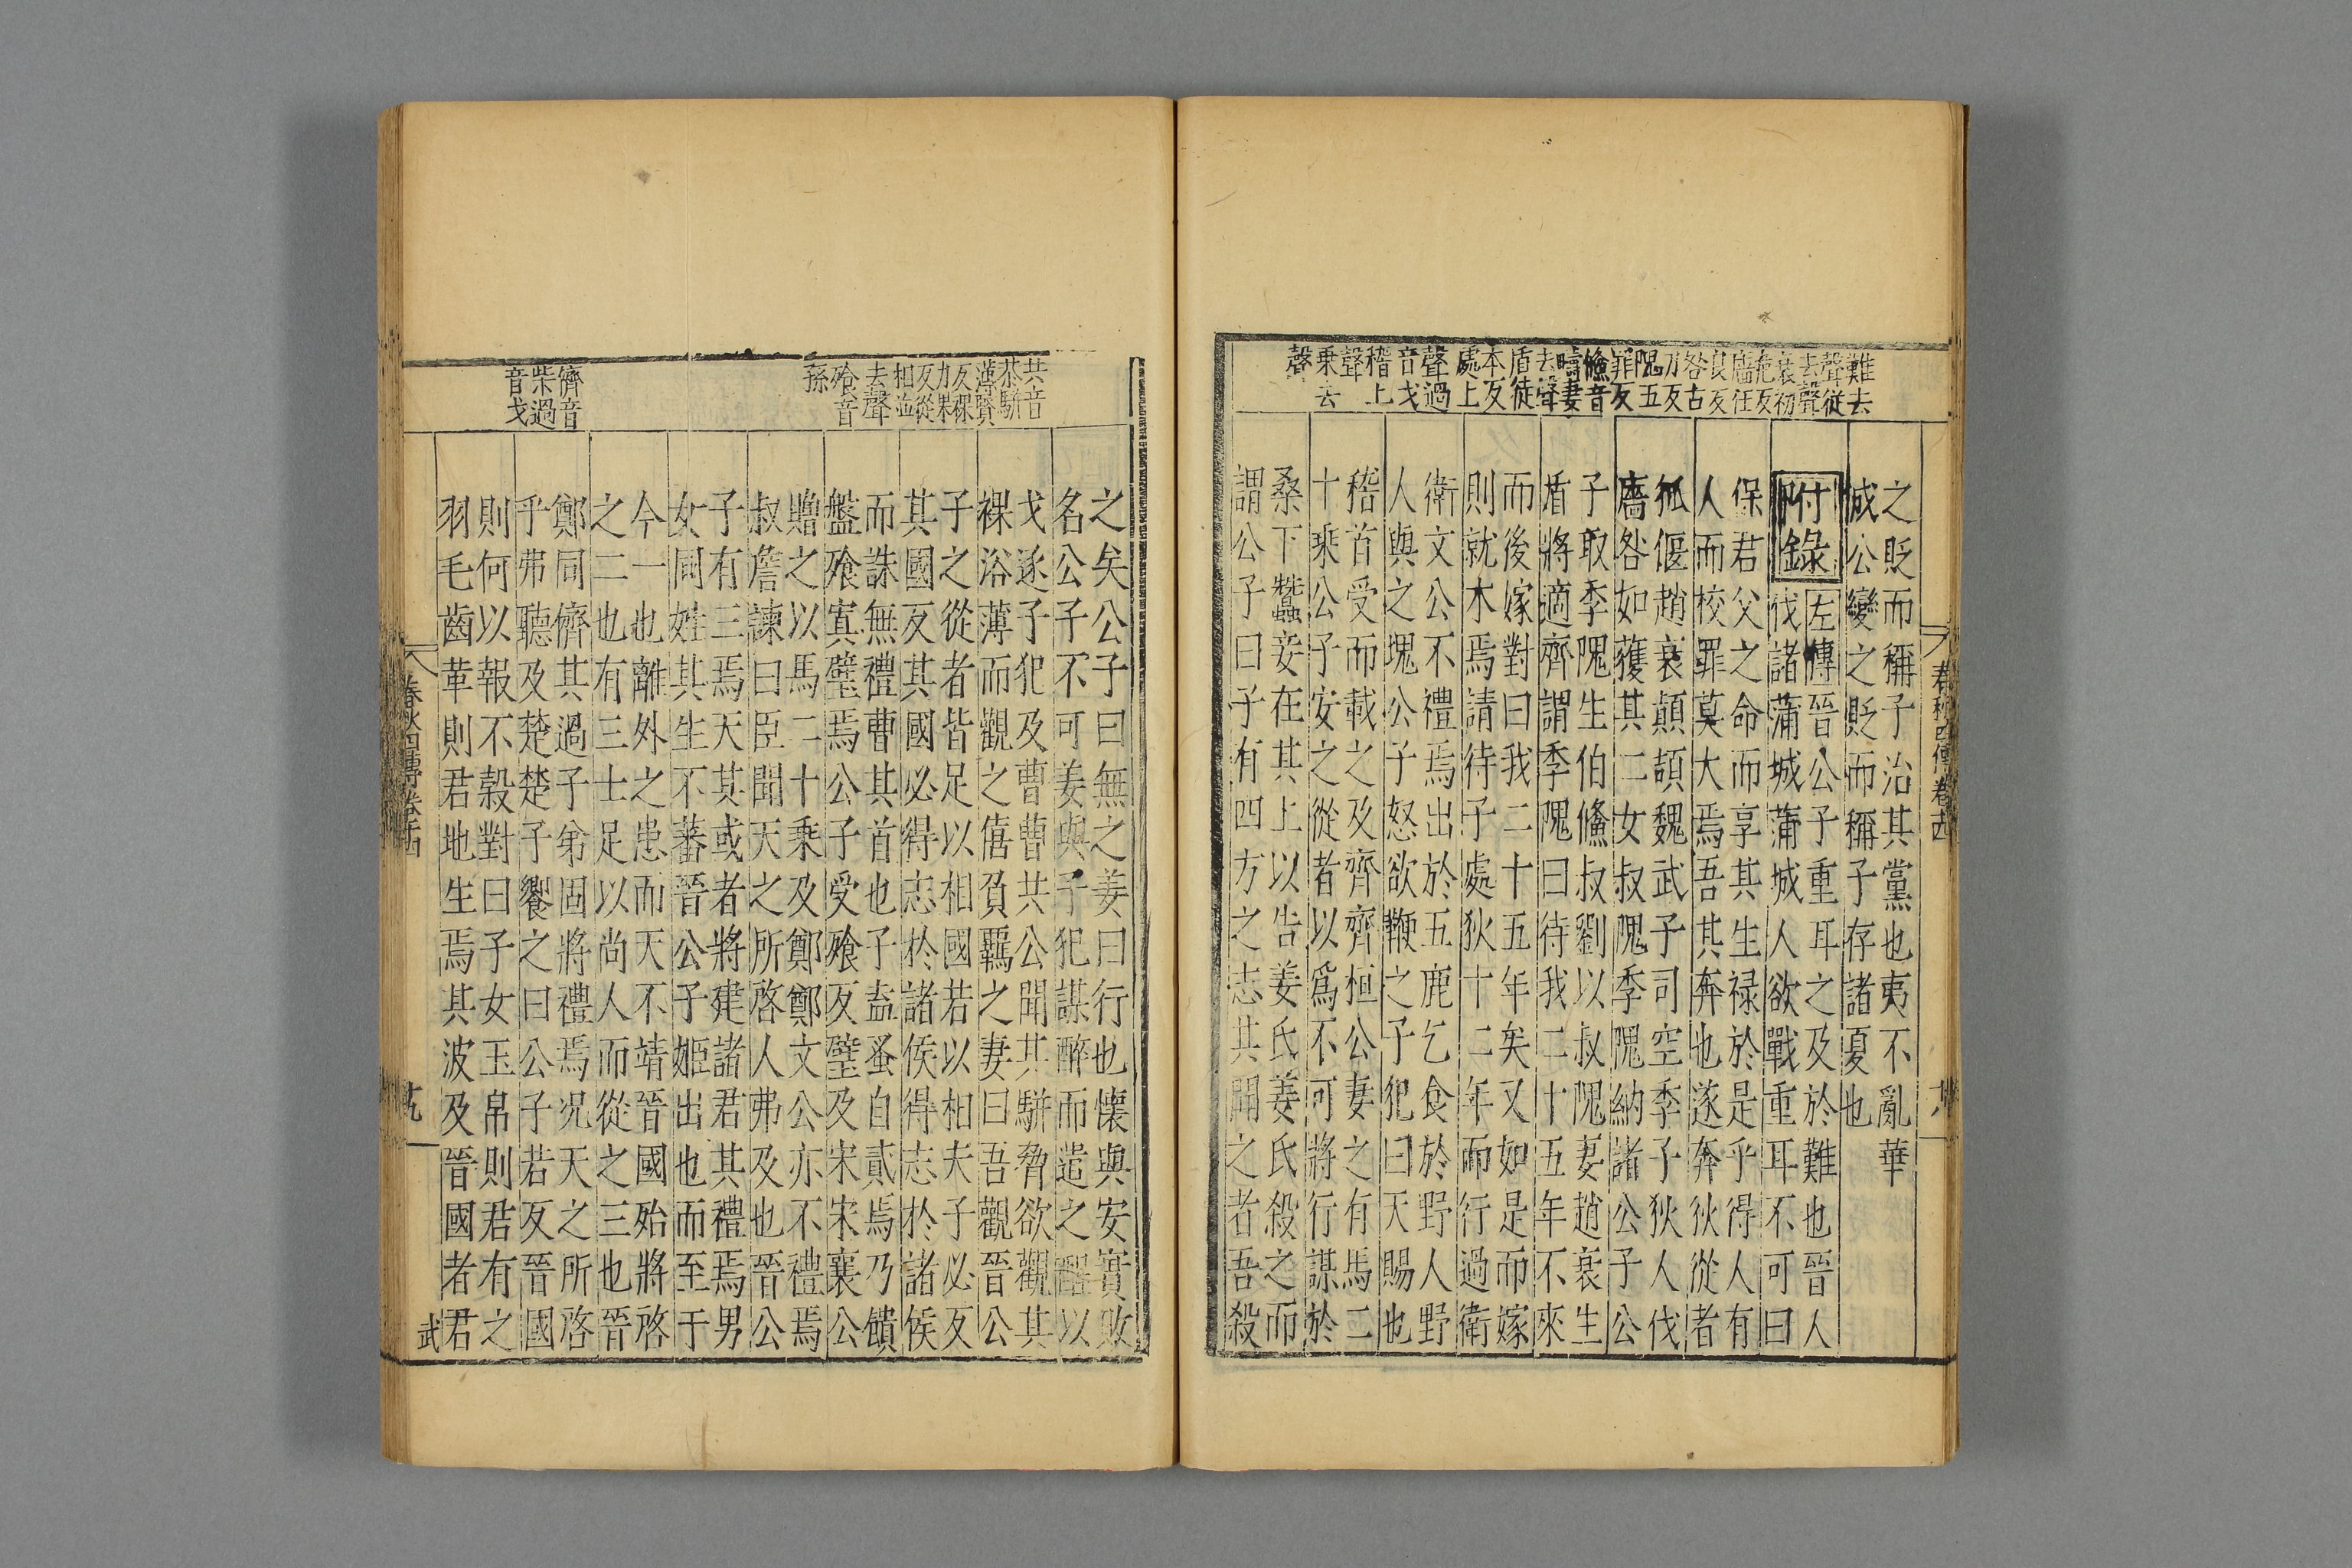 春秋四傳卷十四
十八
難去
聲從
去聲
衰初
危反
廧任
良反
咎古
刀反
隗五
罪反
鯈音
疇妻
去聲
盾徒
本反
處上
聲過
音戈
稽上
聲
乘去
聲
之貶而稱子治其黨也夷不亂華
成公變之貶而稱子存諸夏也
附錄左傳晉公子重耳之及於難也晉人
伐諸蒲城蒲城人欲戰重耳不可曰
保君父之命而享其生祿於是乎得人有
人而校罪莫大焉吾其奔也遂奔狄從者
狐偃趙衰顛頡魏武子司空季子狄人伐
廧咎如獲其二女叔隗季隗納諸公子公
子取季隗生伯鯈叔劉以叔隗妻趙衰生
盾將適齊謂季隗曰待我二十五年不來
而後嫁對曰我二十五年矣又如是而嫁
則就木焉請待子處狄十二年而行過衛
衛文公不禮焉出於五鹿乞食於野人野
人與之塊公子怒欲鞭之子犯曰天賜也
稽首受而載之及齊齊桓公妻之有馬二
十乘公子安之從者以爲不可將行謀於
桑下蠶妾在其上以告姜氏姜氏殺之而
謂公子曰子有四方之志其聞之者吾殺
共音
恭駢
薄賢
反裸
力果
反從
相並
去聲
飧音
孫
儕音
柴過
音戈
之矣公子曰無之姜曰行也懷與安實敗
名公子不可姜與子犯謀醉而遣之醒以
戈逐子犯及曹曹共公聞其駢脅欲觀其
裸浴薄而觀之僖負羈之妻曰吾觀晉公
子之從者皆足以相國若以相夫子必反
其國反其國必得志於諸侯得志於諸侯
而誅無禮曹其首也子盍蚤自貳焉乃饋
盤飧寘璧焉公子受飧反璧及宋宋襄公
贈之以馬二十乘及鄭鄭文公亦不禮焉
叔詹諫曰臣聞天之所啓人弗及也晉公
子有三焉天其或者將建諸君其禮焉男
女同姓其生不蕃晉公子姬出也而至于
今一也離外之患而天不靖晉國殆將啓
之二也有三士足以尚人而從之三也晉
鄭同儕其過子弟固將禮焉況天之所啓
乎弗聽及楚楚子饗之曰公子若反晉國
則何以報不穀對曰子女玉帛則君有之
羽毛齒革則君地生焉其波及晉國者君
春秋四傳卷十四
十九
武